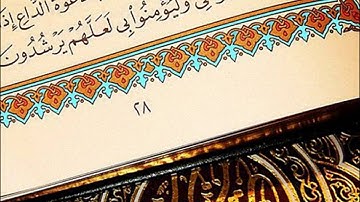 دَعْوَةَ ٱلدَّاعِ إِذَا
وَلْيُؤْمِنُوا۟ بِى لَعَلَّهُمْ يَرْشُدُونَ
٢٨